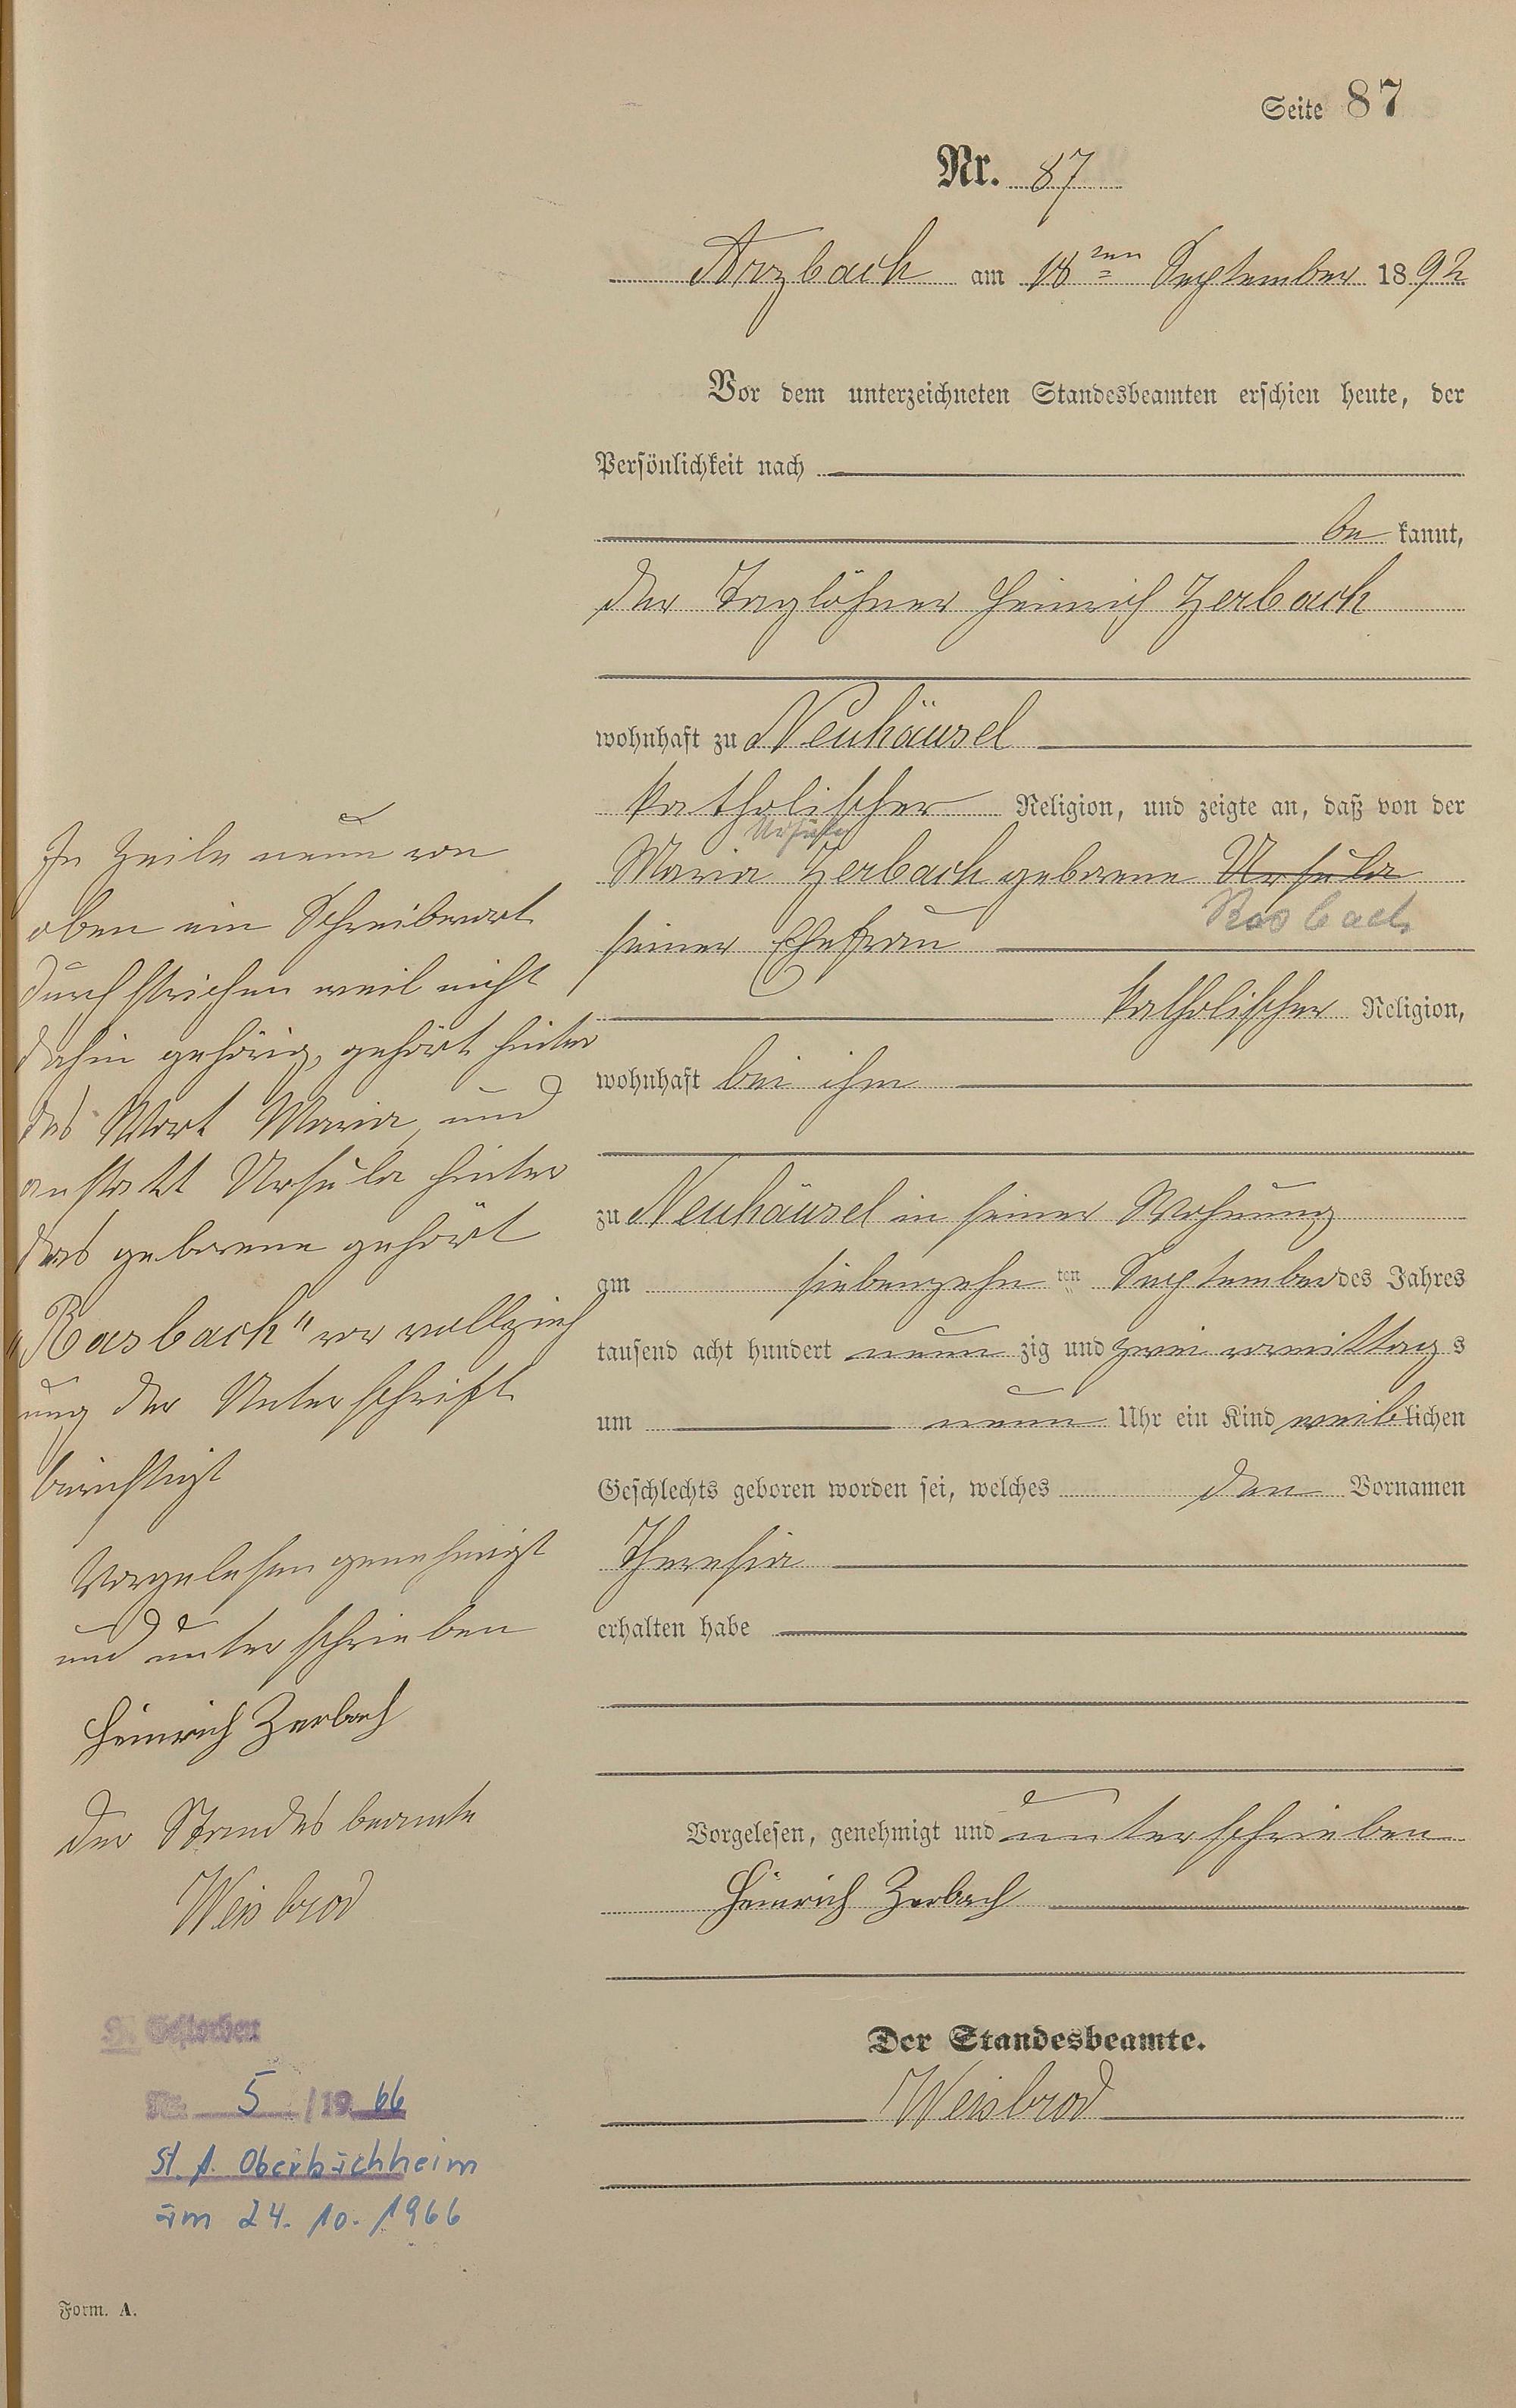 Seite 87
Nr. 87
Arzbach am 18ten September 1892
Vor dem unterzeichneten Standesbeamten erschien heute, der
Persönlichkeit nach
be kannt,
der Taglöhner Heinrich Zerbach
wohnhaft zu Neuhäusel
katholischer Religion, und zeigte an, daß von der
Ursula
Maria Zerbach geborene Ursula
Rosbach
seiner Ehefrau
katholischer Religion,
wohnhaft bei ihm
zu Neuhäusel in seiner Wohnung
am siebenzehnten September des Jahres
tausend acht hundert neunzig und zwei vormittags
um neun Uhr ein Kind weiblichen
Geschlechts geboren worden sei, welches den Vornamen
Theresia
erhalten habe
Vorgelesen, genehmigt und unterschrieben
Heinrich Zerbach
Der Standesbeamte.
Weisbrod
In Zeile neun von
oben ein Schreibwort
durchstrichen weil nicht
dahin gehörig, gehört hinter
das Wort Maria, und
anstatt Ursula hinter
das geborene gehört
"Rosbach" vor vollzieh
ung der Unterschrift
berichtigt
Vorgelesen genehmigt
und unterschrieben
Heinrich Zerbach
Der Standesbeamte
Weisbrod
Gestorben
Nr. 5/1966
St. A. Oberbachheim
am 24. 10. 1966
Form. A.